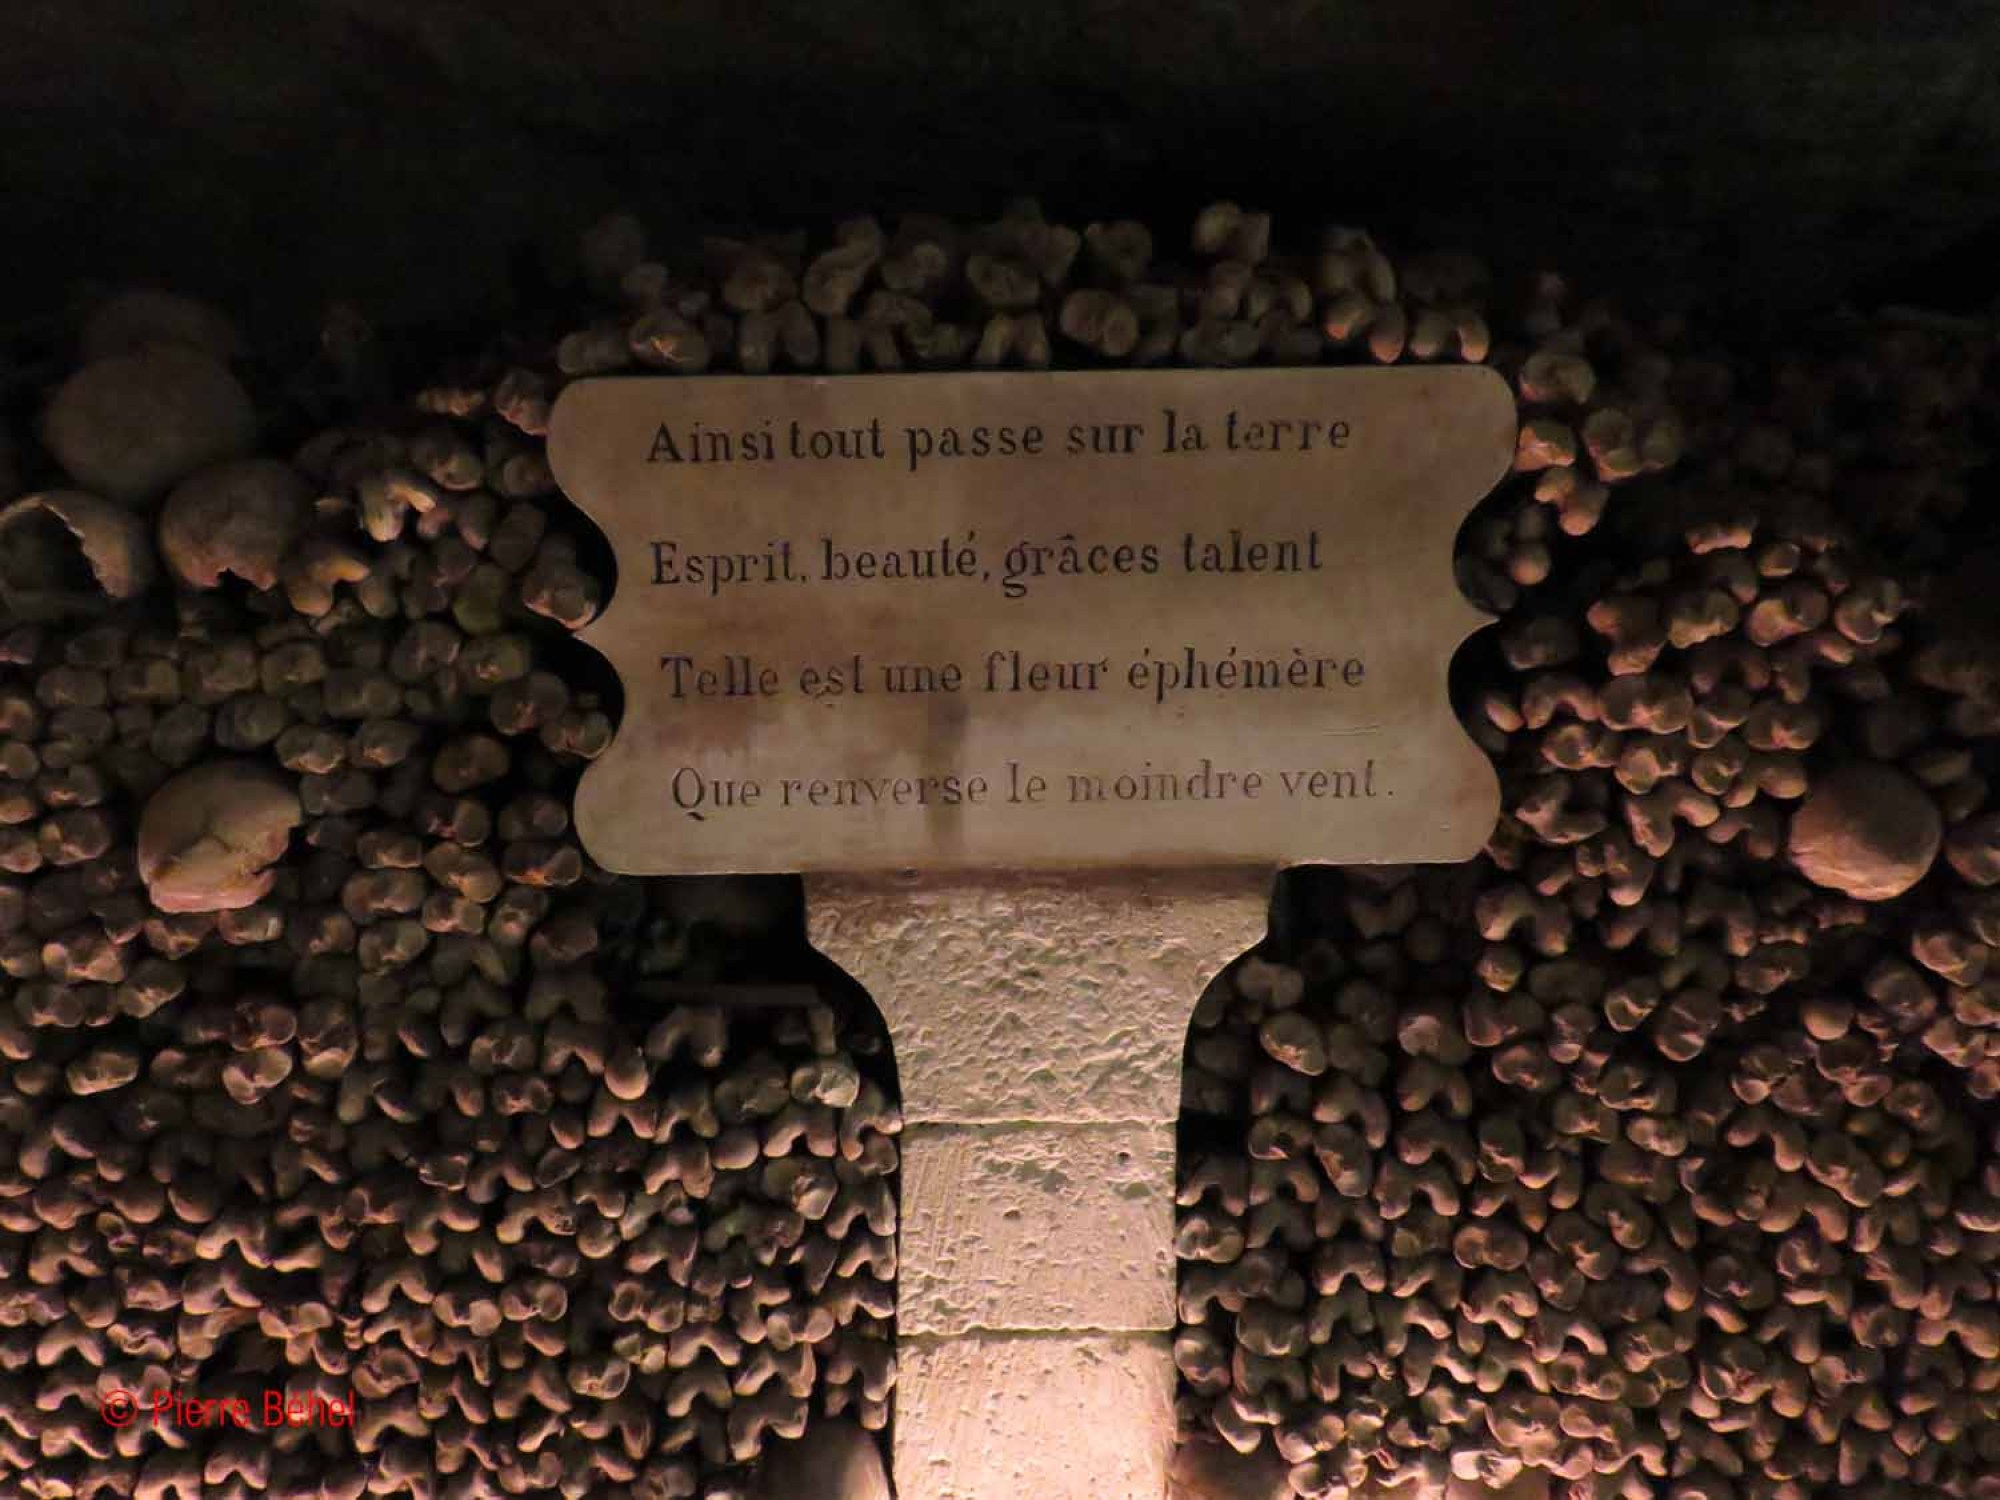 Ainsi tout passe sur la terre
Esprit, beauté, grâces talent
Telle est une fleur éphémère
Que renverse le moindre vent.
© Pierre Béhel